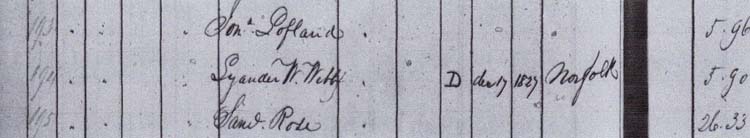 193 . . . . Jona. Lofland . 5.96
194 . . . . Lysander W. Webb . . D dec 17 1827 Norfolk 5.90
195 . . . . Saml. Rose . 26.33